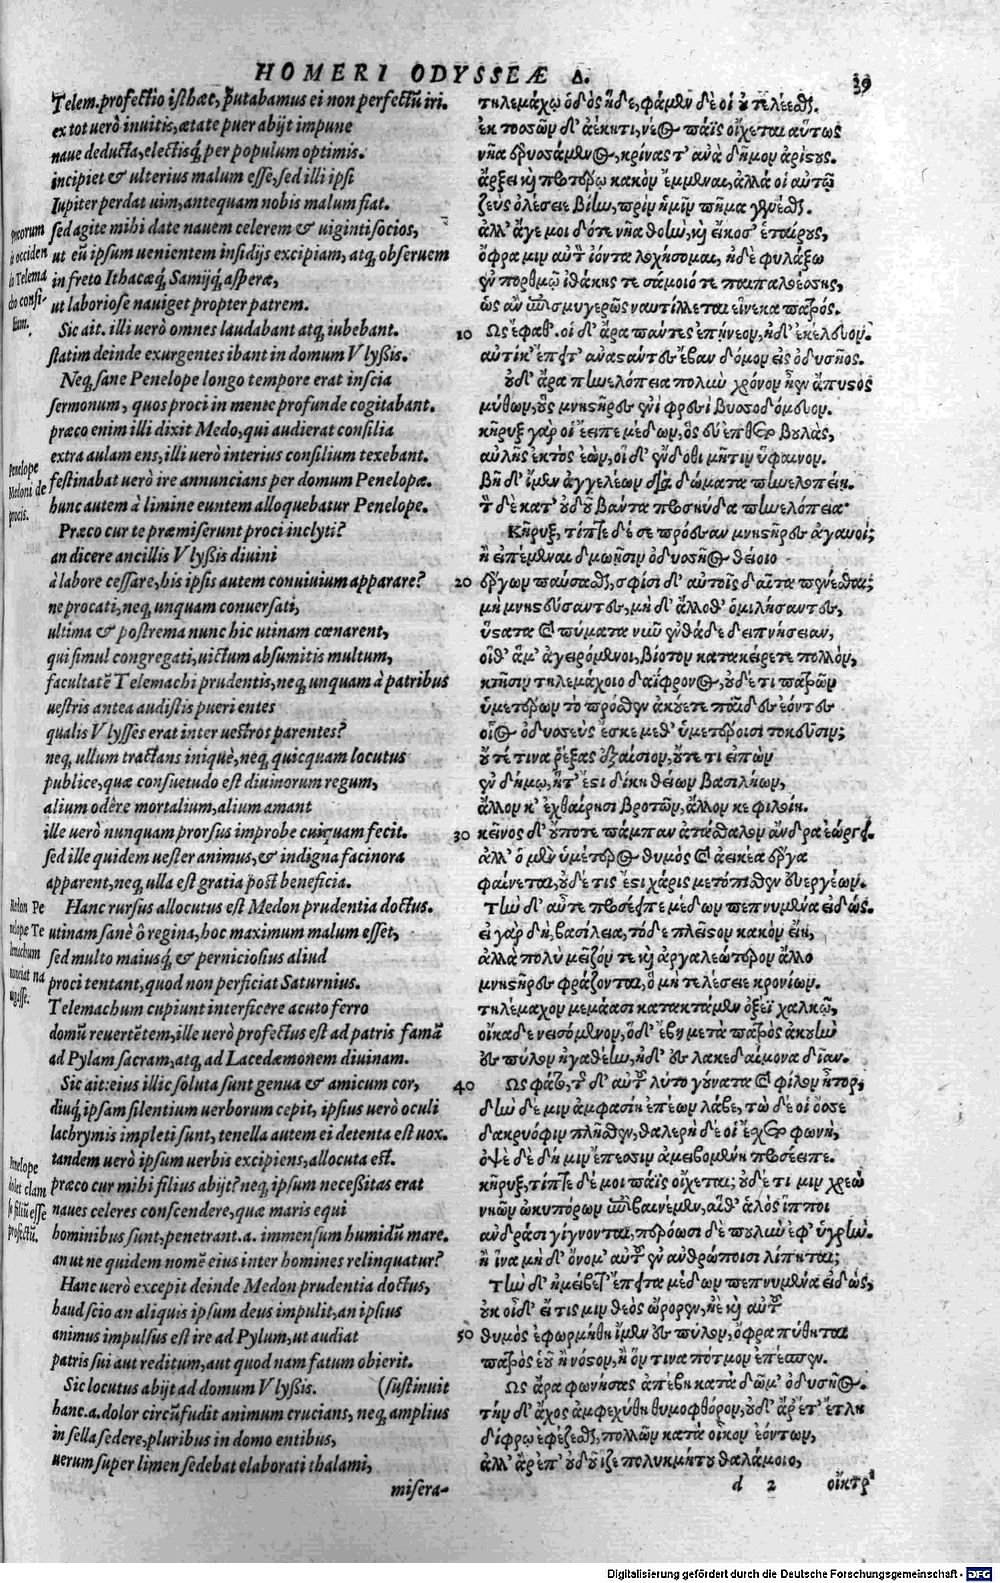 HOMERI ODYSSEÆ Δ.
39
Telem. profectio isthæc, putabamus ei non perfectũ iri.
ex tot uerò inuitis, ætate puer abijt impune
naue deducta, electisq́; per populum optimis.
incipiet & ulterius malum esse, sed illi ipsi
Iupiter perdat uim, antequam nobis malum fiat.
sed agite mihi date nauem celerem & uiginti socios,
ut eũ ipsum uenientem insidijs excipiam, atq; obseruem
in freto Ithacæq́; Samijq́; asperæ,
ut laboriose nauiget propter patrem.
Sic ait. illi uerò omnes laudabant atq; iubebant.
statim deinde exurgentes ibant in domum Vlyßis.
Neq; sane Penelope longo tempore erat inscia
sermonum, quos proci in mente profunde cogitabant.
præco enim illi dixit Medo, qui audierat consilia
extra aulam ens, illi uerò interius consilium texebant.
festinabat uerò ire annuncians per domum Penelopæ.
hunc autem à limine euntem alloquebatur Penelope.
Præco cur te præmiserunt proci inclyti?
an dicere ancillis Vlyßis diuini
à labore cessare, his ipsis autem conuiuium apparare?
ne procati, neq; unquam conuersati,
ultima & postrema nunc hic utinam cœnarent,
qui simul congregati, uictum absumitis multum,
facultatẽ Telemachi prudentis, neq; unquam à patribus
uestris antea audistis pueri entes
qualis Vlysses erat inter uestros parentes?
neq; ullum tractans iniquè, neq; quicquam locutus
publice, quæ consuetudo est diuinorum regum,
alium odêre mortalium, alium amant
ille uerò nunquam prorsus improbe cuiquam fecit.
sed ille quidem uester animus, & indigna facinora
apparent, neq; ulla est gratia post beneficia.
Hanc rursus allocutus est Medon prudentia doctus.
utinam sanè ô regina, hoc maximum malum esset,
sed multo maiusq́; & perniciosius aliud
proci tentant, quod non perficiat Saturnius.
Telemachum cupiunt interficere acuto ferro
domũ reuertẽtem, ille uerò profectus est ad patris famã
ad Pylam sacram, atq; ad Lacedæmonem diuinam.
Sic ait: eius illic soluta sunt genua & amicum cor,
diuq́; ipsam silentium uerborum cepit, ipsius uerò oculi
lachrymis impleti sunt, tenella autem ei detenta est uox.
tandem uerò ipsum uerbis excipiens, allocuta est.
præco cur mihi filius abijt? neq; ipsum necessitas erat
naues celeres conscendere, quæ maris equi
hominibus sunt, penetrant .a. immensum humidũ mare.
an ut ne quidem nomẽ eius inter homines relinquatur?
Hanc uerò excepit deinde Medon prudentia doctus,
haud scio an aliquis ipsum deus impulit, an ipsius
animus impulsus est ire ad Pylum, ut audiat
patris sui aut reditum, aut quod nam fatum obierit.
Sic locutus abijt ad domum Vlyßis. (sustinuit
hanc .a. dolor circũfudit animum crucians, neq; amplius
in sella sedere, pluribus in domo entibus,
uerum super limen sedebat elaborati thalami,
misera-
procorum
occiden
do Telema
cho consi-
lium.
Penelope
Medoni de
procis.
Medon Pe
nelopæ Te
lemachum
nunciat na
ugasse.
Penelope
dolet clam
se filiũ esse
profectũ.
τηλεμάχῳ ὁδὸς ἥδε, φάμεν δέ οἱ οὐ τελέεσθαι.
ἐκ τοσσῶν δ' ἀέκητι, νέος πάϊς οἴχεται αὔτως
νῆα ἐρυσσάμενος, κρίνας τ' ἀνὰ δῆμον ἀρίστους.
ἄρξει καὶ προτέρω κακὸν ἔμμεναι, ἀλλά οἱ αὐτῷ
ζεὺς ὀλέσειε βίην, πρὶν ἡμῖν πῆμα γενέσθαι.
ἀλλ' ἄγε μοι δότε νῆα θοὴν, καὶ εἴκοσ' ἑταίρους,
ὄφρα μιν αὖτ' ἰόντα λοχήσομαι, ἠδὲ φυλάξω
ἐν πορθμῷ ἰθάκης τε σάμοιό τε παιπαλοέσσης,
ὡς ἂν ἐπισμυγερῶς ναυτίλλεται εἵνεκα πατρός.
10 Ὣς ἔφαθ'. οἱ δ' ἄρα πάντες ἐπῄνεον, ἠδ' ἐκέλευον.
αὐτίκ' ἔπειτ' ἀναστάντες ἔβαν δόμον εἰς ὀδυσῆος.
οὐδ' ἄρα πηνελόπεια πολὺν χρόνον ἦεν ἄπυστος
μύθων, οὓς μνηστῆρες ἐνὶ φρεσὶ βυσσοδόμευον.
κῆρυξ γάρ οἱ ἔειπε μέδων, ὃς ἐπεύθετο βουλὰς,
αὐλῆς ἐκτὸς ἐὼν, οἱ δ' ἔνδοθι μῆτιν ὕφαινον.
βῆ δ' ἴμεν ἀγγελέων διὰ δώματα πηνελοπείη.
τὸν δὲ κατ' οὐδοῦ βάντα προσηύδα πηνελόπεια·
Κῆρυξ, τίπτε δέ σε πρόεσαν μνηστῆρες ἀγαυοί;
ἢ εἰπέμεναι δμωῇσιν ὀδυσσῆος θείοιο
20 ἔργων παύσασθαι, σφίσι δ' αὐτοῖς δαῖτα πένεσθαι;
μὴ μνηστεύσαντες, μὴ δ' ἄλλοθ' ὁμιλήσαντες,
ὕστατα καὶ πύματα νῦν ἐνθάδε δειπνήσειαν,
οἳ θ' ἅμ' ἀγειρόμενοι, βίοτον κατακείρετε πολλὸν,
κτῆσιν τηλεμάχοιο δαΐφρονος, οὐδέ τι πατρῶν
ὑμετέρων τὸ πρόσθεν ἀκούετε παῖδες ἐόντες
οἷος ὀδυσσεὺς ἔσκε μεθ' ὑμετέροισι τοκεῦσιν;
οὔτέ τινα ῥέξας ἐξαίσιον, οὔτε τι εἰπὼν
ἐν δήμῳ, ἥτ' ἐστὶ δίκη θείων βασιλήων,
ἄλλον κ' ἐχθαίρησι βροτῶν, ἄλλον κε φιλοίη.
30 κεῖνος δ' οὔποτε πάμπαν ἀτάσθαλον ἄνδρα ἐώργει.
ἀλλ' ὁ μὲν ὑμέτερος θυμὸς καὶ ἀεικέα ἔργα
φαίνεται, οὐδέ τις ἐστὶ χάρις μετόπισθεν εὐεργέων.
Τὴν δ' αὖτε προσέειπε μέδων πεπνυμένα εἰδώς.
εἰ γὰρ δὴ, βασίλεια, τόδε πλεῖστον κακὸν εἴη,
ἀλλὰ πολὺ μεῖζόν τε καὶ ἀργαλεώτερον ἄλλο
μνηστῆρες φράζονται, ὃ μὴ τελέσειε κρονίων.
τηλέμαχον μεμάασι κατακτάμεν ὀξέϊ χαλκῷ,
οἴκαδε νεισόμενον, ὁ δ' ἔβη μετὰ πατρὸς ἀκουὴν
ἐς πύλον ἠγαθέην, ἠδ' ἐς λακεδαίμονα δῖαν.
40 Ὣς φάτο, τῆς δ' αὐτοῦ λύτο γούνατα καὶ φίλον ἦτορ,
δὴν δέ μιν ἀμφασίη ἐπέων λάβε, τὼ δέ οἱ ὄσσε
δακρυόφιν πλῆσθεν, θαλερὴ δέ οἱ ἔσχετο φωνή,
ὀψὲ δὲ δή μιν ἔπεσσιν ἀμειβομένη προσέειπε.
κῆρυξ, τίπτε δέ μοι πάϊς οἴχεται; οὐδέ τι μιν χρεὼ
νηῶν ὠκυπόρων ἐπιβαινέμεν, αἵθ' ἁλὸς ἵπποι
ἀνδράσι γίγνονται, περόωσι δὲ πουλὺν ἐφ' ὑγρήν.
ἢ ἵνα μὴ δ' ὄνομ' αὐτοῦ ἐν ἀνθρώποισι λίπηται;
Τὴν δ' ἠμείβετ' ἔπειτα μέδων πεπνυμένα εἰδὼς,
οὐκ οἶδ' εἴ τις μιν θεὸς ὤρορεν, ἠὲ καὶ αὐτοῦ
50 θυμὸς ἐφωρμήθη ἴμεν ἐς πύλον, ὄφρα πύθηται
πατρὸς ἑοῦ ἢ νόστον, ἢ ὅν τινα πότμον ἐπέσπεν.
Ὣς ἄρα φωνήσας ἀπέβη κατὰ δῶμ' ὀδυσῆος.
τὴν δ' ἄχος ἀμφεχύθη θυμοφθόρον, οὐδ' ἄρ' ἔτ' ἔτλη
δίφρῳ ἐφέζεσθαι, πολλῶν κατὰ οἶκον ἐόντων,
ἀλλ' ἄρ' ἐπ' οὐδοῦ ἷζε πολυκμήτου θαλάμοιο,
d 2
οἴκτρ'
Digitalisierung gefördert durch die Deutsche Forschungsgemeinschaft - DFG